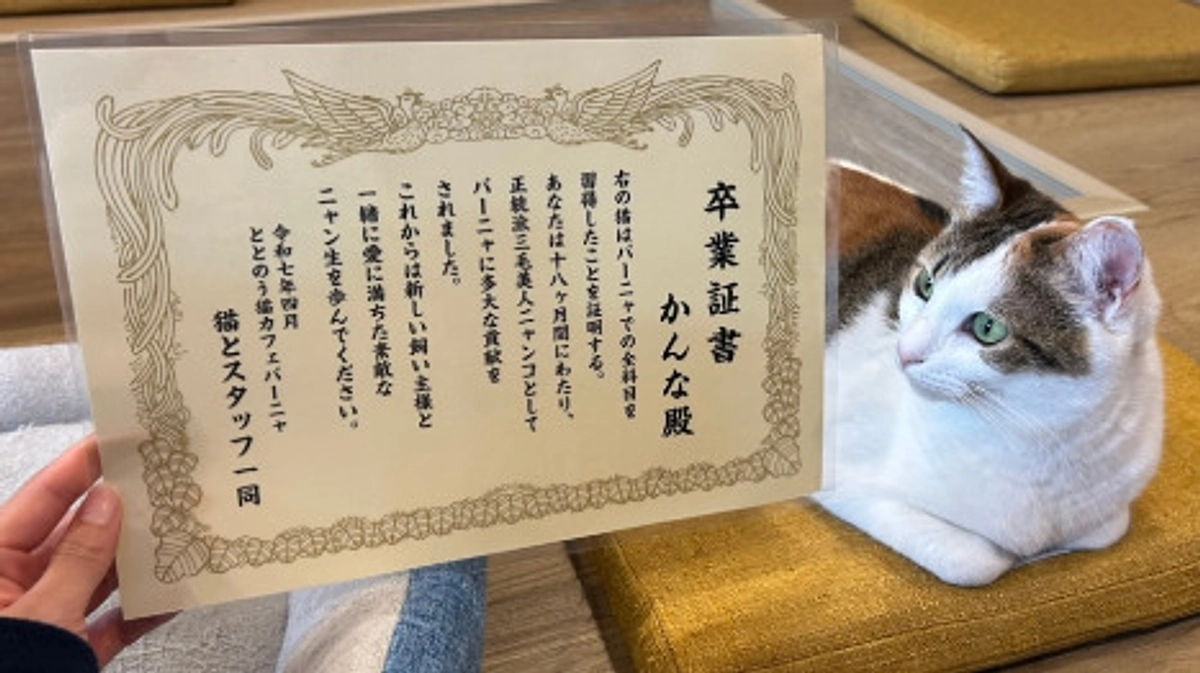 卒業証書
かんな殿
右の猫はパーニャでの全科目を
習得したことを証明する。
あなたは十八ヶ月間にわたり、
正統派三毛美人ニャンコとして
パーニャに多大な貢献を
されました。
これからは新しい飼い主様と
一緒に愛に満ちた素敵な
ニャン生を歩んでください。
令和七年四月
ととのう猫カフェパーニャ
猫とスタッフ一同